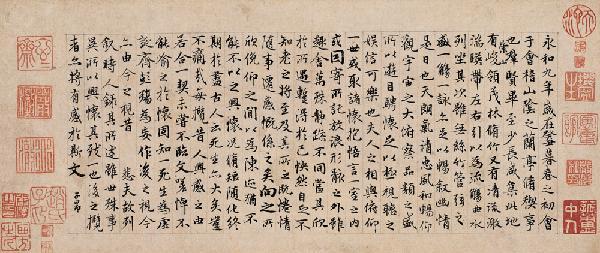 永和九年歲在癸丑暮春之初會
于會稽山陰之蘭亭脩禊事
也羣賢畢至少長咸集此地
有崇山峻領茂林脩竹又有清流激
湍暎帶左右引以為流觴曲水
列坐其次雖無絲竹管弦之
盛一觴一詠亦足以暢敘幽情
是日也天朗氣清惠風和暢仰
觀宇宙之大俯察品類之盛
所以遊目騁懷足以極視聽之
娛信可樂也夫人之相與俯仰
一世或取諸懷抱悟言一室之內
或因寄所託放浪形骸之外雖
趣舍萬殊靜躁不同當其欣
於所遇暫得於己怏然自足不
知老之將至及其所之既惓情
隨事遷感慨係之矣向之所
欣俛仰之間以為陳迹猶不
能不以之興懷況脩短隨化終
期於盡古人云死生亦大矣豈
不痛哉每攬昔人興感之由
若合一契未嘗不臨文嗟悼不
能喻之於懷固知一死生為虛
誕齊彭殤為妄作後之視今
亦由今之視昔 悲夫故列
敘時人錄其所述雖世殊事
異所以興懷其致一也後之攬
者亦將有感於斯文 子昂